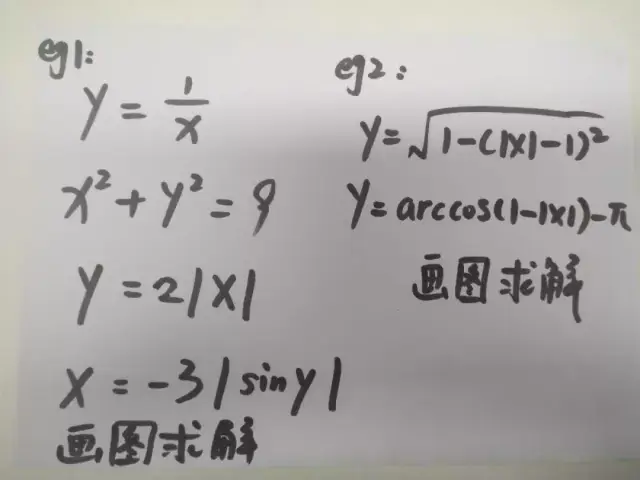 eg1:
y = 1/x
x² + y² = 9
y = 2|x|
x = -3|sin y|
画图求解
eg2:
y = √(1-(|x|-1)²)
y = arccos(1-|x|)-π
画图求解